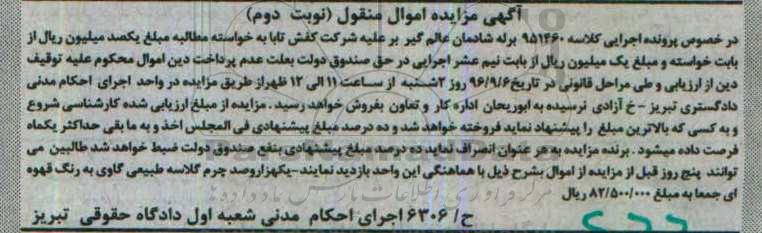 آگهی مزایده اموال منقول (نوبت دوم)
در خصوص پرونده اجرایی کلاسه ۹۵۱۴۶۰ برله شادمان عالم گیر بر علیه شرکت کفش تابا به خواسته مطالبه مبلغ یکصد میلیون ریال از
بابت خواسته و مبلغ یک میلیون ریال از بابت نیم عشر اجرایی در حق صندوق دولت بعلت عدم پرداخت دین اموال محکوم علیه توقیف
دین از ارزیابی و طی مراحل قانونی در تاریخ ۹۶/۹/۶ روز ۲شنبه از ساعت ۱۱ الی ۱۲ ظهر از طریق مزایده در واحد اجرای احکام مدنی
دادگستری تبریز - خ آزادی نرسیده به ابوریحان اداره کار و تعاون بفروش خواهد رسید . مزایده از مبلغ ارزیابی شده کارشناسی شروع
و به کسی که بالاترین مبلغ را پیشنهاد نماید فروخته خواهد شد و ده درصد مبلغ پیشنهادی فی المجلس اخذ و به ما بقی حداکثر یکماه
فرصت داده میشود . برنده مزایده به هر عنوان انصراف نماید ده درصد مبلغ پیشنهادی بنفع صندوق دولت ضبط خواهد شد طالبین می
توانند پنج روز قبل از مزایده از اموال بشرح ذیل با هماهنگی این واحد بازدید نمایند-یکهزاروصد چرم گلاسه طبیعی گاوی به رنگ قهوه
ای جمعا به مبلغ ۸۲/۵۰۰/۰۰۰ ریال
ح/ ۶۳۰۶ اجرای احکام مدنی شعبه اول دادگاه حقوقی تبریز